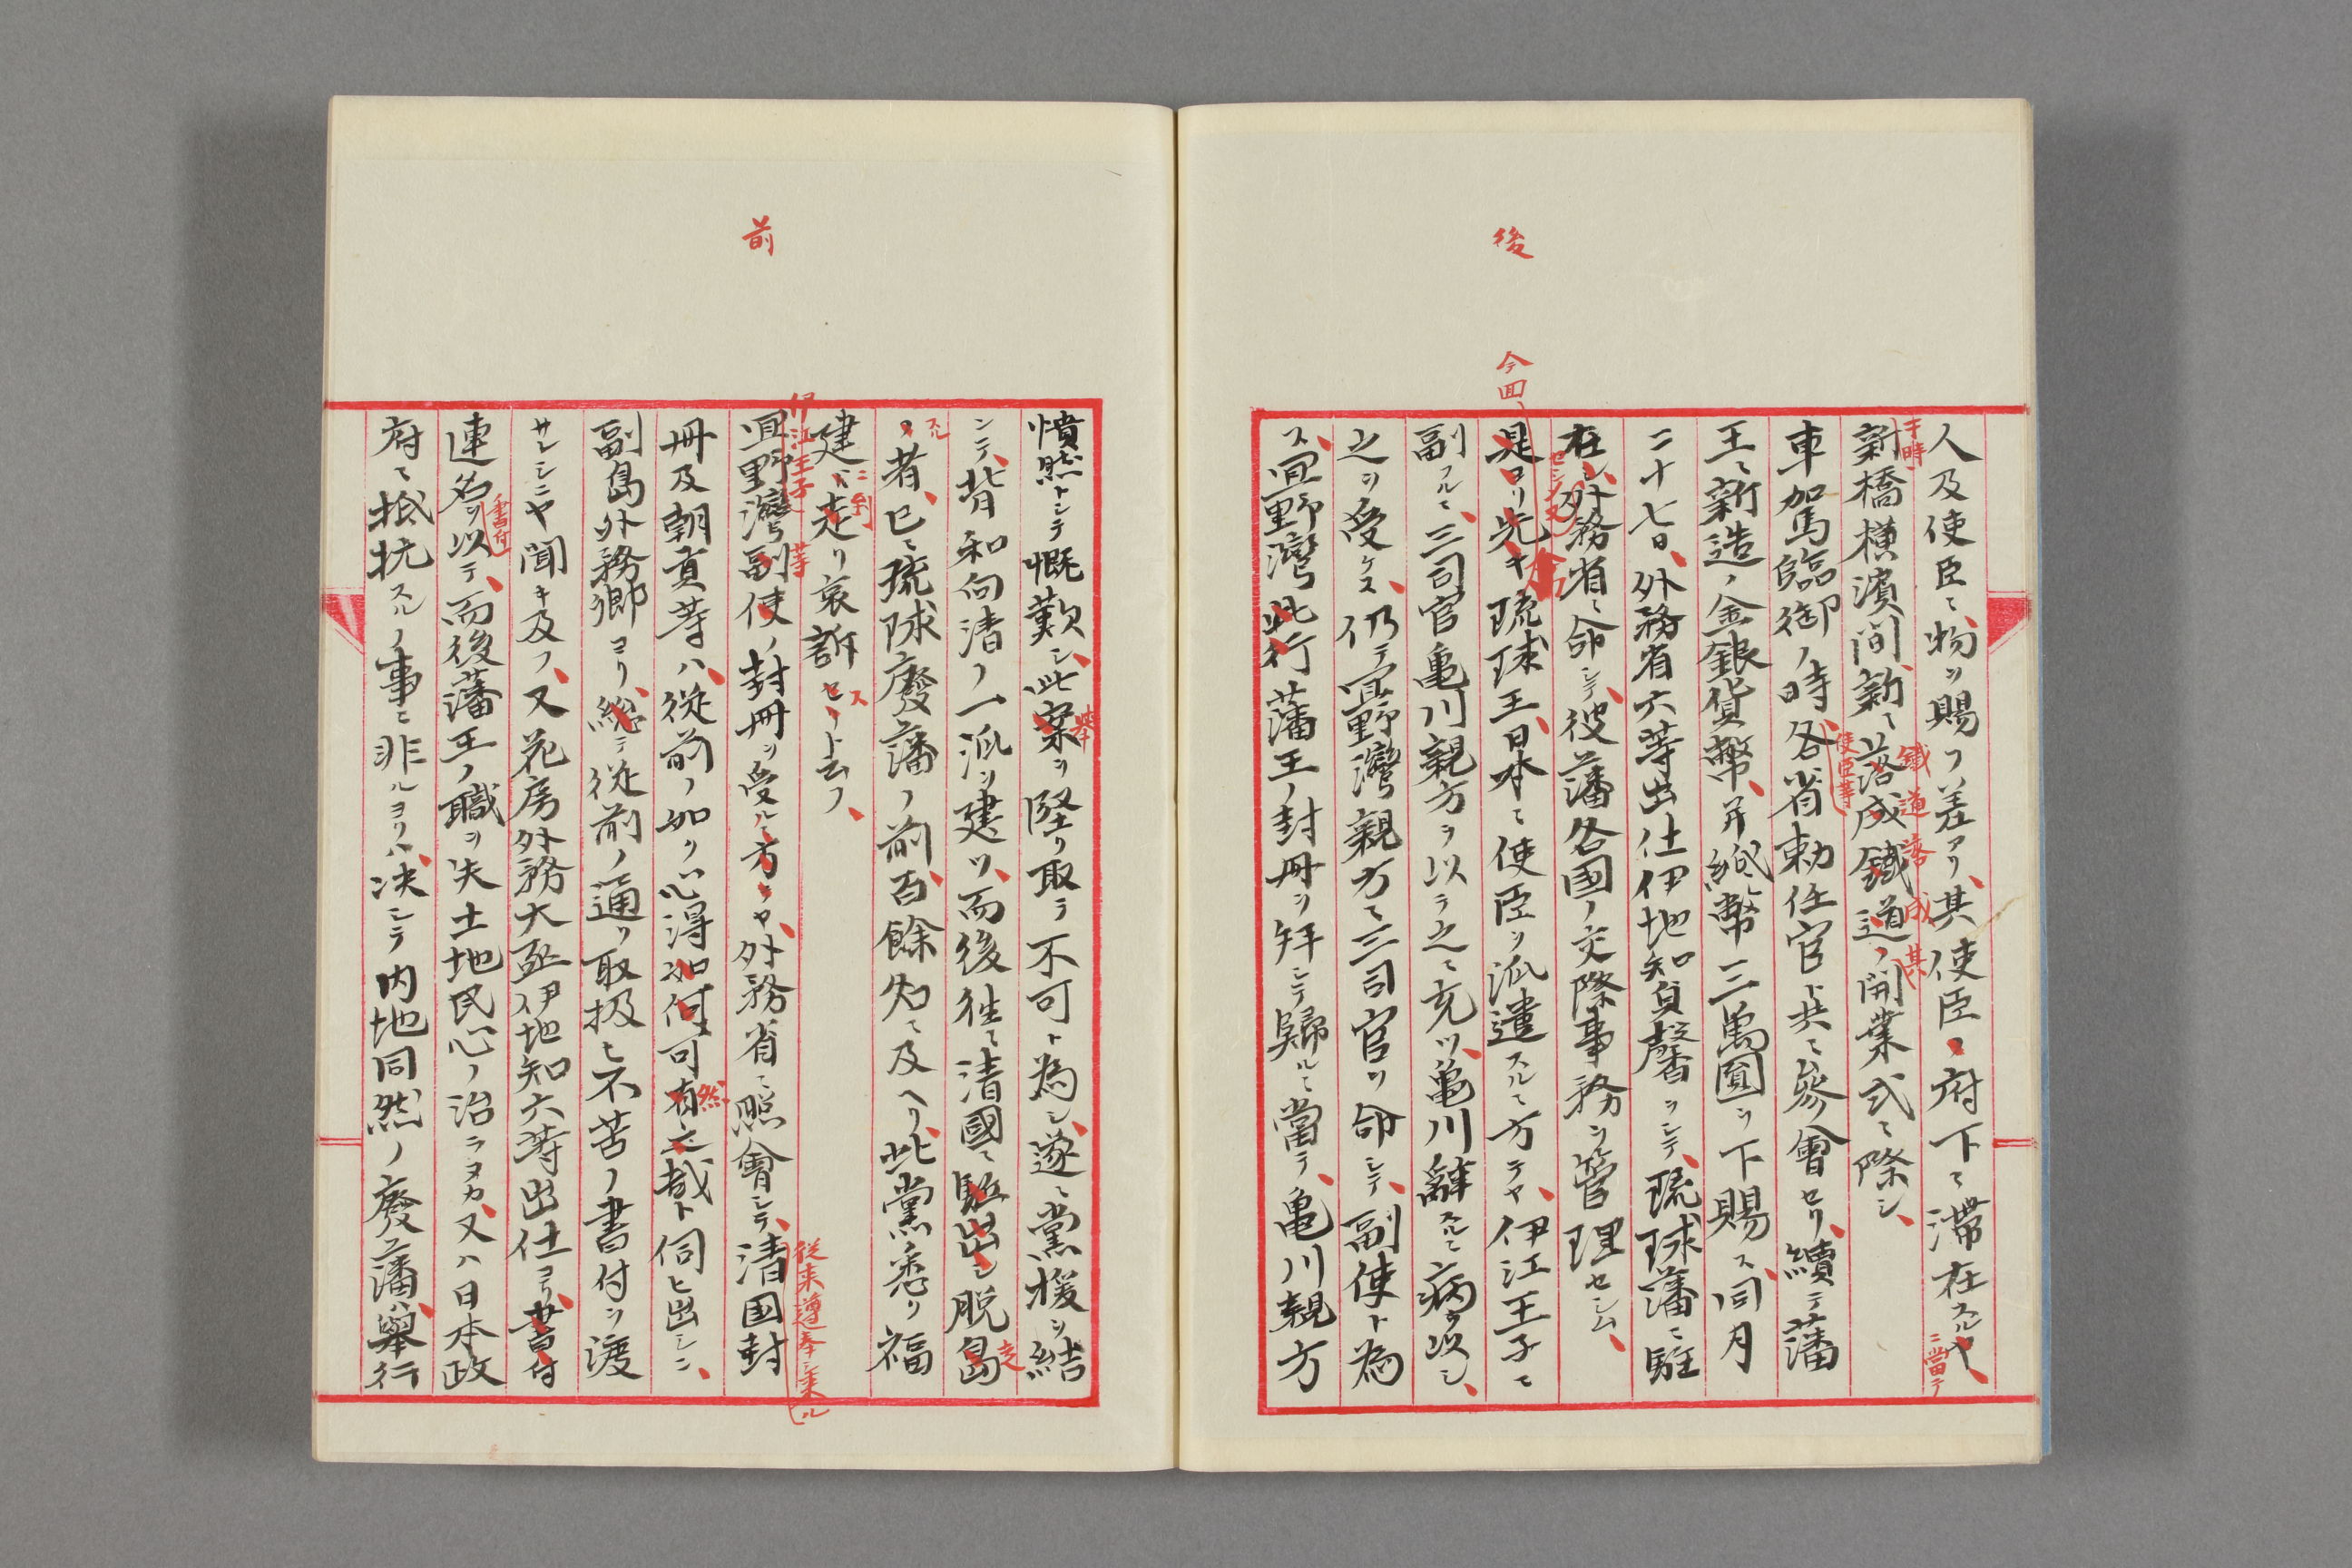 後
今回、
人及使臣ニ物ヲ賜フ差アリ、其使臣ノ府下ニ滞在スルヤ、
ニ當テ
于時、
新橋横濱間、新ニ落成鐵道ノ開業式ニ際シ、
鐵道落成其
車駕臨御ノ時、各省勅任官ト共ニ參會セリ、續テ藩
使臣等
王ニ新造ノ金銀貨幣、并紙幣三萬圓ヲ下賜ス、同月
二十七日、外務省六等出仕伊地知貞馨ヲシテ、琉球藩ニ駐
在シ、外務省ニ命シテ、彼藩各國ノ交際事務ヲ管理セシム、
セシメ又
是ヨリ先キ琉球王、日本ニ使臣ヲ派遣スルニ方テヤ、伊江王子ニ
副フルニ、三司官亀川親方ヲ以テ之ニ充ツ、亀川辭スルニ病ヲ以シ、
之ヲ受ケス、仍テ宜野灣親方ニ三司官ヲ命シテ、副使ト為
ス、宜野灣此行藩王ノ封冊ヲ拜シテ歸ルニ當テ、亀川親方
前
憤然トシテ慨歎シ、此案ヲ堅ク取テ不可ト為シ、遂ニ黨援ヲ結
擧
ンテ、背和向清ノ一派ヲ建ツ、而後往テ清國ニ駈出シ脱島
走
ノ者、已ニ琉球廢藩ノ前、百餘名ニ及ヘリ、此黨悉ク福
スル
建ニ走リ哀訴セリト云フ、
ニ到
ス
伊江王子
等
宜野灣副使ノ封冊ヲ受ルニ方テヤ、外務省ニ照會シテ、清国封
従来遵奉シ来ル
冊及朝貢等ハ、従前ノ如ク心得如何可有之哉ト伺ヒ出シニ、
然
副島外務卿ヨリ、総テ従前ノ通リ取扱ヒ不苦ノ書付ヲ渡
サレシニヤ聞キ及フ、又花房外務大丞伊地知六等出仕ヨリ、書付
連名ヲ以テ、而後藩王ノ職ヲ失土地民心ノ治ラヨカ、又ハ日本政
書付
府ニ抵抗スルノ事ニ非ルヨリハ、决シテ内地同然ノ廢藩ハ、擧行